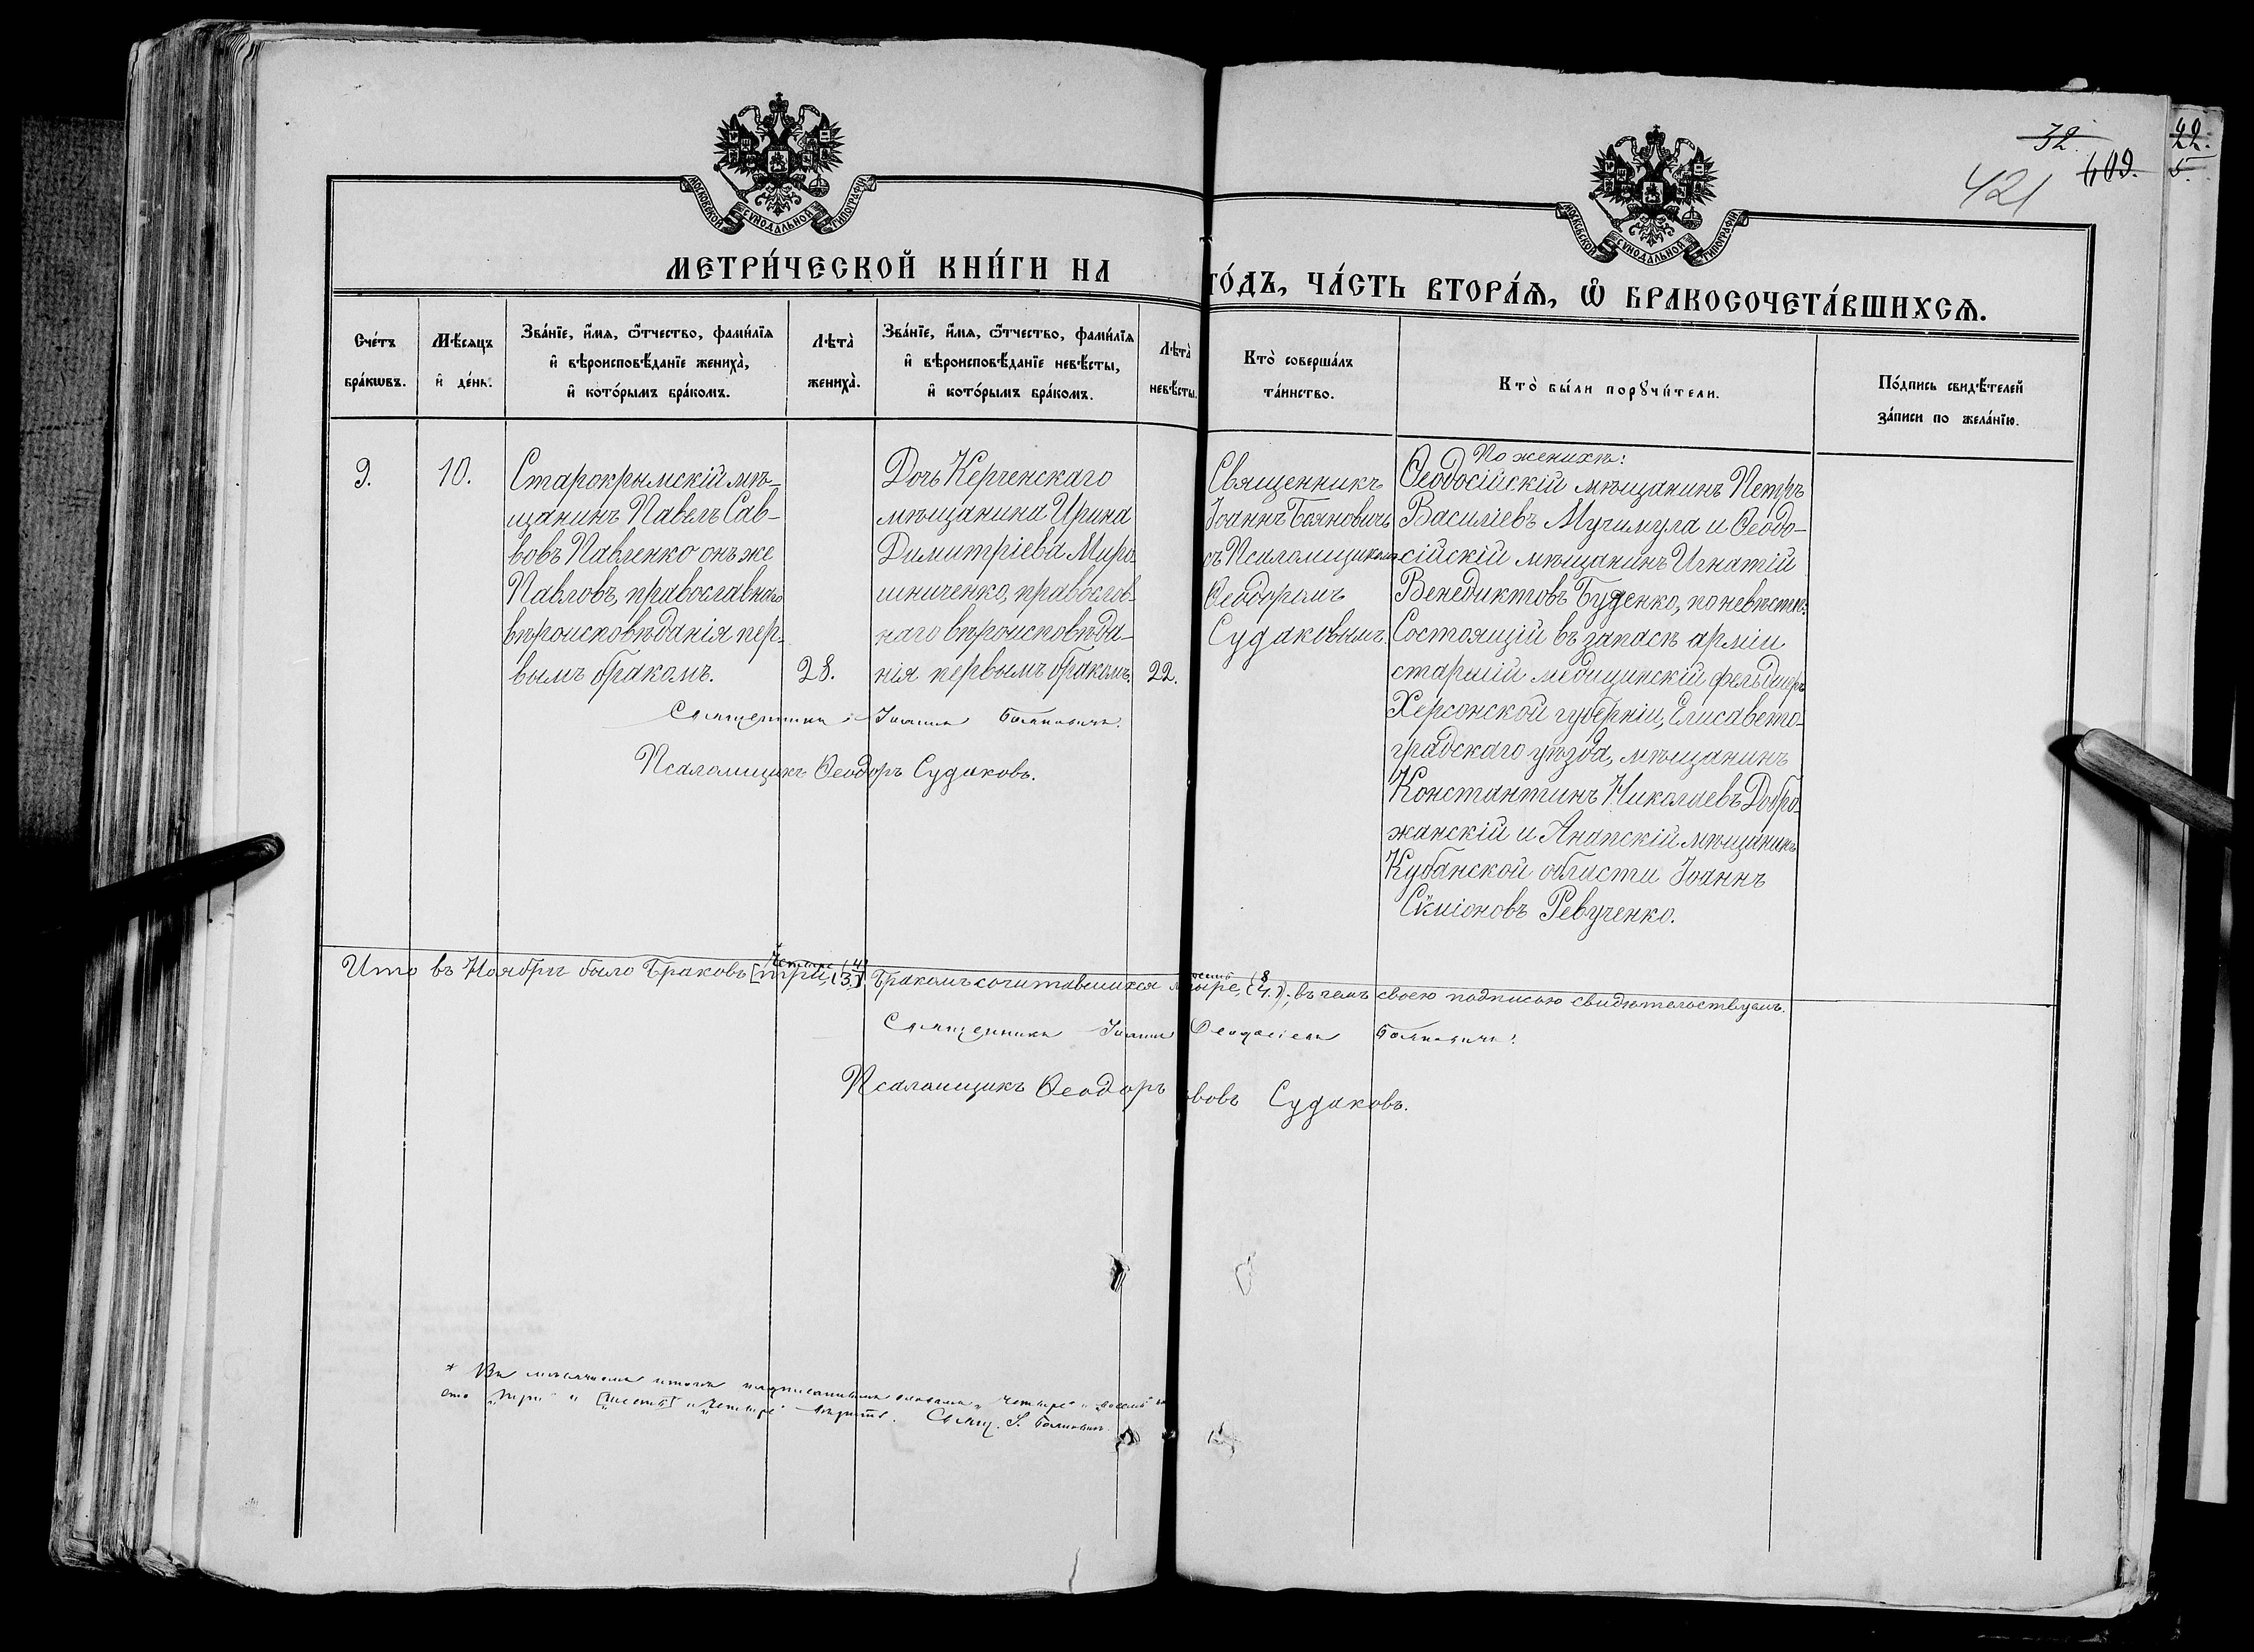 32.
609.
421
22.
5.
МОСКОВСКОЙ СѴНОДАЛЬНОЙ ТИПОГРАФІИ
МОСКОВСКОЙ СѴНОДАЛЬНОЙ ТИПОГРАФІИ
МЕТРИ́ЧЕСКОЙ КНИ́ГИ НА ГО́ДЪ, ЧА́СТЬ ВТОРА́Ѧ, Ѽ БРАКОСОЧЕТА́ВШИХСѦ.
Сче́тъ
бра́кѡвъ.
Мѣ́сѧцъ
и҆ де́нь.
Зва́нїе, и҆́мѧ, ѻ҆́тчество, фами́лїѧ
и҆ вѣроисповѣ́данїе жениха̀,
и҆ кото́рымъ бра́комъ.
Лѣта̀
жениха̀.
Зва́нїе, и҆́мѧ, ѻ҆́тчество, фами́лїѧ
и҆ вѣроисповѣ́данїе невѣ́сты,
и҆ кото́рымъ бра́комъ.
Лѣта̀
невѣ́сты.
Кто̀ соверша́лъ
та́инство.
Кто̀ бы́ли порꙋчи́тели.
По́дпись свидѣ́телей
за́писи по жела́нїю.
9.
10.
Старокрымскій мѣ-
щанинъ Павелъ Сав-
вовъ Павленко онъ же
Павловъ, православнаго
вѣроисповѣданія пер-
вымъ бракомъ.
28.
Дочь Керченскаго
мѣщанина Ирина
Димитріева Миро-
шниченко, православ-
наго вѣроисповѣда-
нія первымъ бракомъ.
22.
Священникъ
Іоаннъ Бояновичъ
съ Псаломщикомъ
Ѳеодоромъ
Судаковымъ.
По женихѣ:
Ѳеодосійскій мѣщанинъ Петръ
Василіевъ Мучимула и Ѳеодо-
сійскій мѣщанинъ Игнатій
Венедиктовъ Буденко, по невѣстѣ:
Состоящій въ запасѣ арміи
старшій медицинскій фельдшеръ
Херсонской губерніи, Елисавето-
градскаго уѣзда, мѣщанинъ
Константинъ Николаевъ Добро-
жанскій и Анапскій мѣщанинъ
Кубанской области Іоаннъ
Симіоновъ Ревученко.
Священникъ Іоаннъ Бояновичъ.
Псаломщикъ Ѳеодоръ Судаковъ.
четыре (4) восемь (8
Итго въ Ноябрѣ было браковъ [три, (3.)] бракомъ сочитавшихся тыре, (4.); въ чемъ своею подписью свидѣтельствуемъ.
Священникъ Іоаннъ Ѳеодосіевъ Бояновичъ.
Псаломщикъ Ѳеодоръ вовъ Судаковъ.
* Въ мѣсячномъ итогѣ надписаннымъ словамъ „четыре" и „восемь"
„три" и [шесть] „четыре" вѣрить. Свящ. І. Бояновичъ.